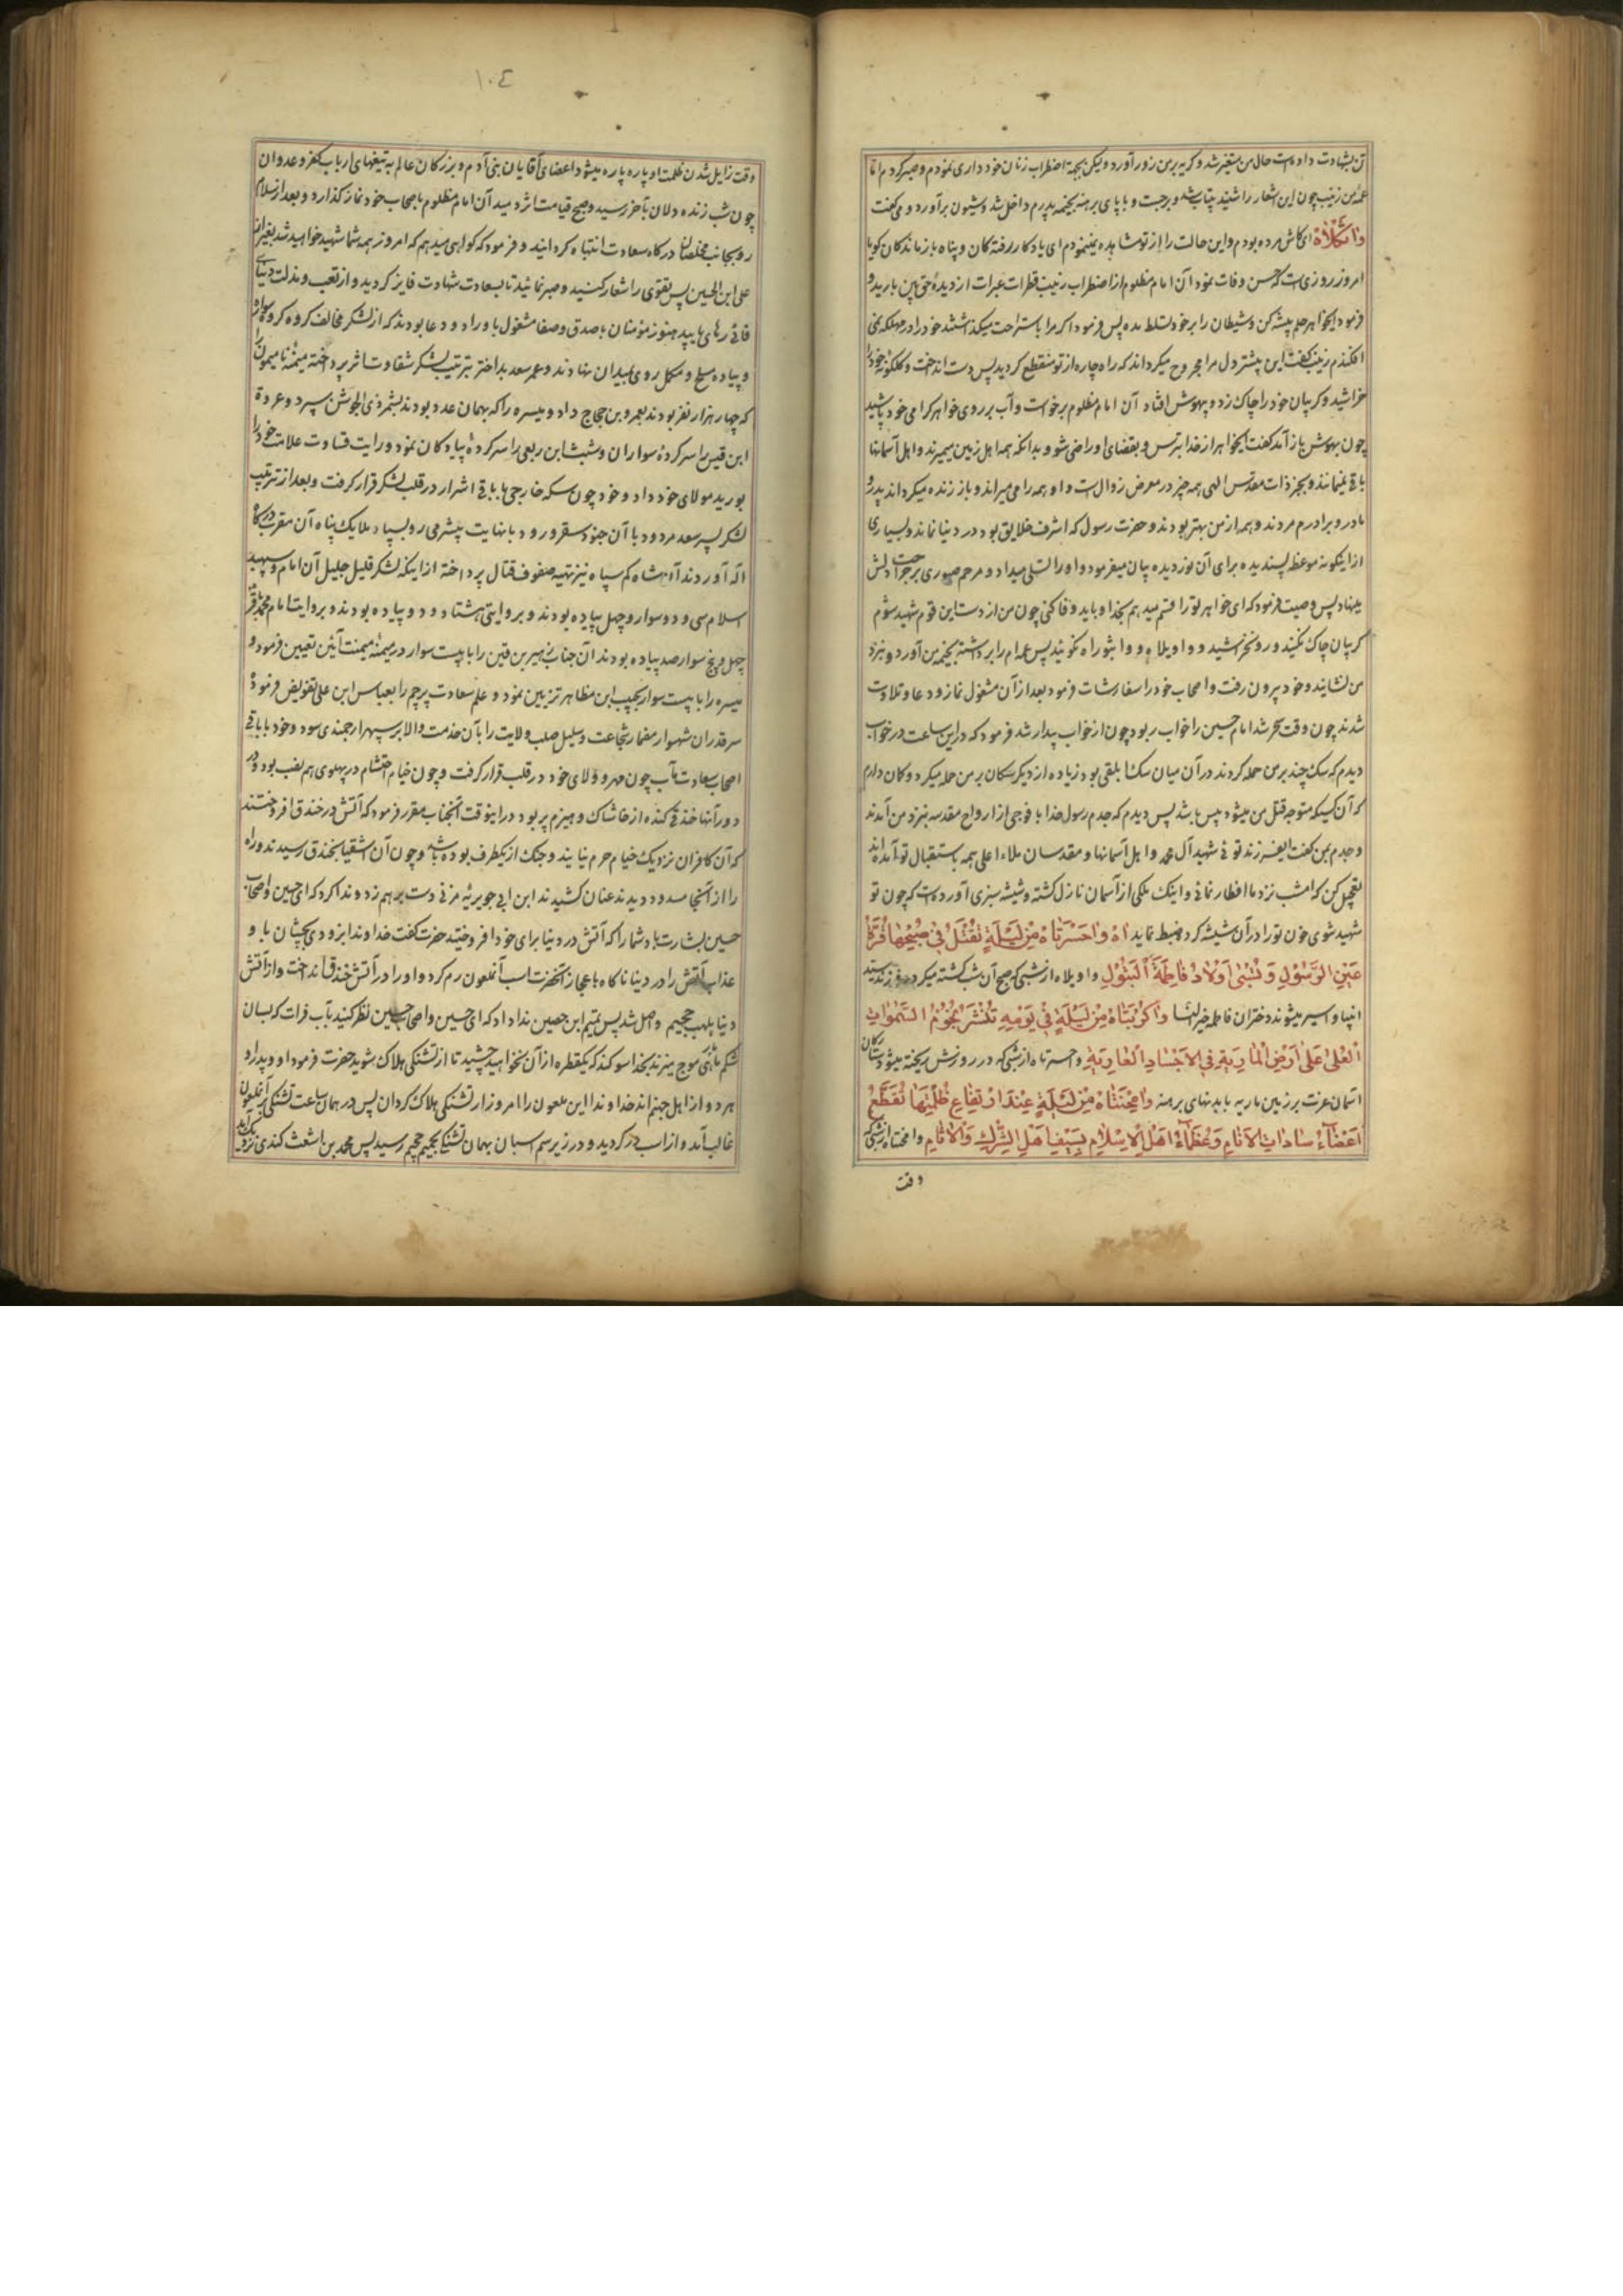 تن بشهادت داده است حال من متغیر شد و کریه بر من زور آورد ولیکن بجهة اضطراب زنان خود داری نمودم و صبر کردم اما
عمهٔ من زینب چون این اشعار را شنید بیتاب شد و برجست و با پای برهنه بخیمه پدرم داخل شد و شیون برآورد و می کفت
واثکلاه ای کاش مرده بودم و این حالت را از تو مشاهده نمینمودم ای یادکار رفته کان و پناه باز ماندکان کویا
امروز روزی است که حسن وفات نمود آن امام مظلوم از اضطراب زینب قطرات عبرات از دیدهٔ حق بین بارید و
فرمود ایخواهر حلم پیشه کن و شیطان را بر خود تسلط مده پس فرمود اکر مرا باستراحت میکذاشتند خود را در مهلکه نمی
افکندم زینب کفت این بیشتر دل مرا مجروح میکرداند که راه چاره از تو منقطع کردید پس دست انداخت و کلکونه خود را
خراشید و کریبان خود را چاک زد و بیهوش افتاد آن امام مظلوم برخواست و آب بر روی خواهر کرامی خود پاشید
چون بهوش باز آمد کفت ایخواهر از خدا بترس و بقضای او راضی شو و بدانکه همه اهل زمین میمیرند و اهل آسمانها
باقی نمیمانند و بجز ذات مقدس الهی همه چیز در معرض زوال است و او همه را می میراند و باز زنده میکرداند پدر و
مادر و برادرم مردند و همه از من بهتر بودند و حضرت رسول که اشرف خلایق بود در دنیا نماند و بسیاری
از اینکونه موعظه پسندیده برای آن نوردیده بیان میفرمود و او را تسلی میداد و مرحم صبوری بر جراحت دلش
مینهاد پس وصیت فرمود که ای خواهر تو را قسم میدهم بخدا و باید وفا کنی چون من از دست این قوم شهید شوم
کریبان چاک نکنید و رو نخرشید و واویلاه و واثبوراه نکوئید پس عمه ام را برداشته بخیمه من آورد و بنزد
من نشانید و خود بیرون رفت و اصحاب خود را سفارشات فرمود بعد از آن مشغول نماز و دعا و تلاوت
شدند چون وقت سحر شد امام حسین را خواب ربود چون از خواب بیدار شد فرمود که در این ساعت در خواب
دیدم که سک چند بر من حمله کردند در آن میان سک ابلقی بود زیاده از دیکر سکان بر من حمله میکرد و کان دارم
که آن کسیکه متوجه قتل من میشود پیس باشد پس دیدم که جدم رسول خدا با فوجی از ارواح مقدسه بنزد من آمدند
و جدم بمن کفت ایفرزند توئی شهید آل محمد و اهل آسمانها و مقدسان ملاء اعلی همه باستقبال تو آمده اند
تعجیل کن که امشب نزد ما افطار نمائی و اینک ملکی از آسمان نازل کشته و شیشه سبزی آورده است که چون تو
شهید شوی خون تو را در آن شیشه کرده ضبط نماید اٰه وٰاحَسْرَتٰاهْ مِنْ لَیْلَةٍ تُقْتَلُ فی صَبیحِهٰا قُرَّةُ
عَیْنِ الرَّسُولِ وَ تُسْبٰی اَوْلٰادُ فٰاطِمَةَ الْبَتُولِ واویلاه از شبی که صبح آن شب کشته میکردد فرزند سید
انبیا و اسیر میشوند دختران فاطمه خیر النسا وٰاکُرْبَتٰاهْ مِنْ لَیْلَةٍ فی یَوْمِهِ تُنْثَرُ نُجُومُ السَّمٰوٰاتِ
الْعُلیٰ عَلیٰ اَرْضِ الْمٰارِیَةِ فِی الْاَجْسٰادِ الْعٰارِیَةِ واحسرتاه از شبی که در روزش ریخته میشود ستارکان
آسمان عزت بر زمین ماریه با بدنهای برهنه وٰامِحْنَتٰاهْ مِنْ لَیْلَةٍ عِنْدَ ارْتِفٰاعِ ظُلْمَتِهٰا تُقَطَّعُ
اَعْضٰاءُ سٰادٰاتِ الْاَنٰامِ وَ عُظَمٰاءُ اَهْلِ الْاِسْلٰامِ بِسَیْفِ اَهْلِ الشِّرْکِ وَ الْاٰثٰامِ وامحنتاه از شبی که
وقت
١٠٤
وقت زایل شدن ظلمت او پاره پاره میشود اعضای آقایان بنی آدم و بزرکان عالم به تیغهای ارباب کفر و عدوان
چون شب زنده دلان بآخر رسید و صبح قیامت اثر دمید آن امام مظلوم با صحاب خود نماز کذارد و بعد از سلام
رو بجانب مخلصان درکاه سعادت انتباه کردانید و فرمود که کواهی میدهم که امروز همه شما شهید خواهید شد بغیر از
علی ابن الحسین پس تقوی را شعار کنید و صبر نمائید تا بسعادت شهادت فایز کردید و از تعب و مذلت دنیای
فانی رهائی یابید هنوز مؤمنان با صدق و صفا مشغول باوراد و دعا بودند که از لشکر مخالف کروه کروه سواره
و پیاده مسلح و مکمل روی بمیدان نهادند و عمر سعد بد اختر بترتیب لشکر شقاوت اثر پرداخته میمنهٔ نامیمون را
که چهار هزار نفر بودند بعمرو بن حجاج داد و میسره را که بهمان عدد بودند بشمر ذی الجوشن سپرد و عروة
ابن قیس را سرکردهٔ سواران و شبث ابن ربعی را سرکردهٔ پیادکان نمود و رایت قساوت علامت خود را
بورید مولای خود داد و خود چون سکه خارجی ها با باقی اشرار در قلب لشکر قرار کرفت و بعد از ترتیب
لشکر پسر سعد مردود با آن جنود سقر ورود با نهایت بیشرمی رو بسپاه ملایک پناه آن مقرب درکاه
اله آوردند آن شاه کم سپاه نیز تهیه صفوف قتال پرداخته از اینکه لشکر قلیل جلیل آن امام و سپهبد
اسلام سی و دو سوار و چهل پیاده بودند و بروایتی هشتاد و دو پیاده بودند و بروایت امام محمد باقر
چهل و پنج سوار صد پیاده بودند آن جناب زهیر بن قین را با بیست سوار در میمنهٔ میمنت آئین تعیین فرمود و
میسره را با بیست سوار بحبیب ابن مظاهر تزیین نمود و علم سعادت پرچم را بعباس ابن علی تفویض فرموده
سر قدر آن شهسوار مضمار شجاعت و سلیل صلب ولایت را بآن خدمت والا بر سپهر ارجمندی سود و خود با باقی
اصحاب سعادت مآب چون مهر و ولای خود در قلب قرار کرفت و چون خیام احتشام در پهلوی هم نصب بود و در
دور آنها خندقی کنده از خاشاک و هیزم پر بود در اینوقت آنجناب مقرر فرمود که آتش در خندق افروختند
که آن کافران نزدیک خیام حرم نیایند و جنک از یکطرف بوده باشد و چون آن اشقیا بخندق رسیدند و راه
را از آنجا مسدود دیدند عنان کشیدند ابن ابی جویریه مزنی دست بر هم زد و ندا کرد که ای حسین و اصحاب
حسین بشارت باد شما را که آتش در دنیا برای خود افروختید حضرت کفت خداوندا بزودی بچشان باو
عذاب آتش را در دنیا ناکاه با عجاز آنحضرت اسب آنملعون رم کرد و او را در آتش خندق انداخت و از آتش
دنیا بلهب جحیم واصل شد پس تمیم ابن حصین ندا داد که ای حسین و اصحاب حسین نظر کنید بآب فرات که بسان
شکم ماهی موج میزند بخدا سوکند که یکقطره از آن نخواهید چشید تا از تشنکی هلاک شوید حضرت فرمود او و پدر او
هر دو از اهل جهنم اند خداوندا این ملعون را امروز از تشنکی هلاک کردان پس در همان ساعت تشنکی بر آنملعون
غالب آمد و از اسب در کردید و در زیر سم اسبان بهمان تشنکی بجحیم رسید پس محمد بن اشعث کندی نزدیک آمد